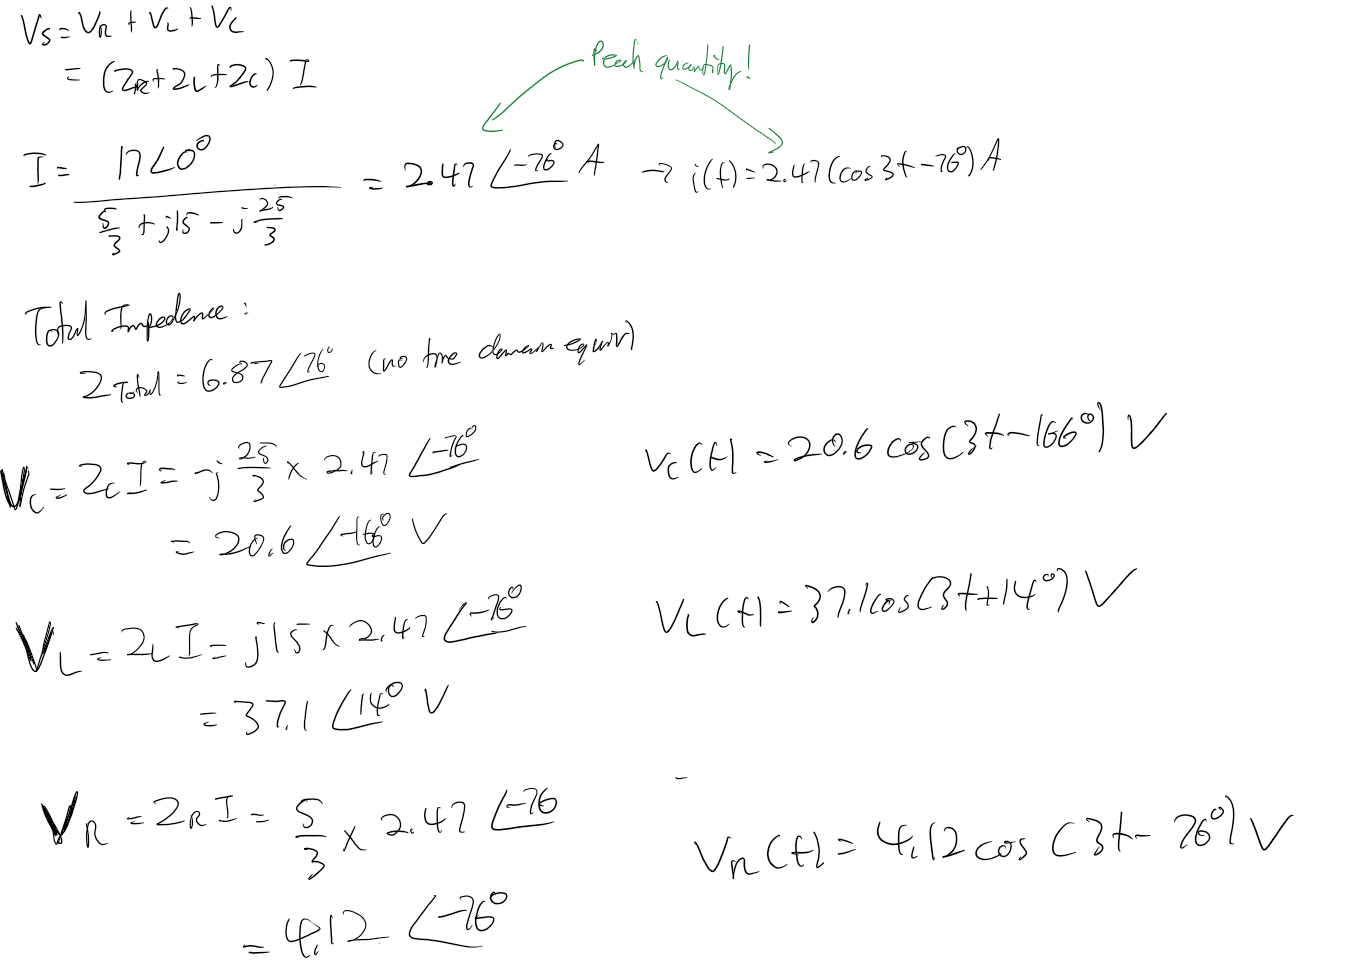 Vs = VR + VL + VC
= (ZR + ZL + ZC) I
Peak quantity!
I = 17∠0° / (5/3 + j15 - j 25/3) = 2.47 ∠-76° A → i(t) = 2.47 (cos 3t - 76°) A
Total Impedence :
Z Total = 6.87 ∠76° (no time domain equiv)
VC = ZC I = -j 25/3 × 2.47 ∠-76°
= 20.6 ∠-166° V
vC(t) = 20.6 cos (3t - 166°) V
VL = ZL I = j15 × 2.47 ∠-76°
= 37.1 ∠14° V
VL(t) = 37.1 cos (3t + 14°) V
VR = ZR I = 5/3 × 2.47 ∠-76
= 4.12 ∠-76°
VR(t) = 4.12 cos (3t - 76°) V